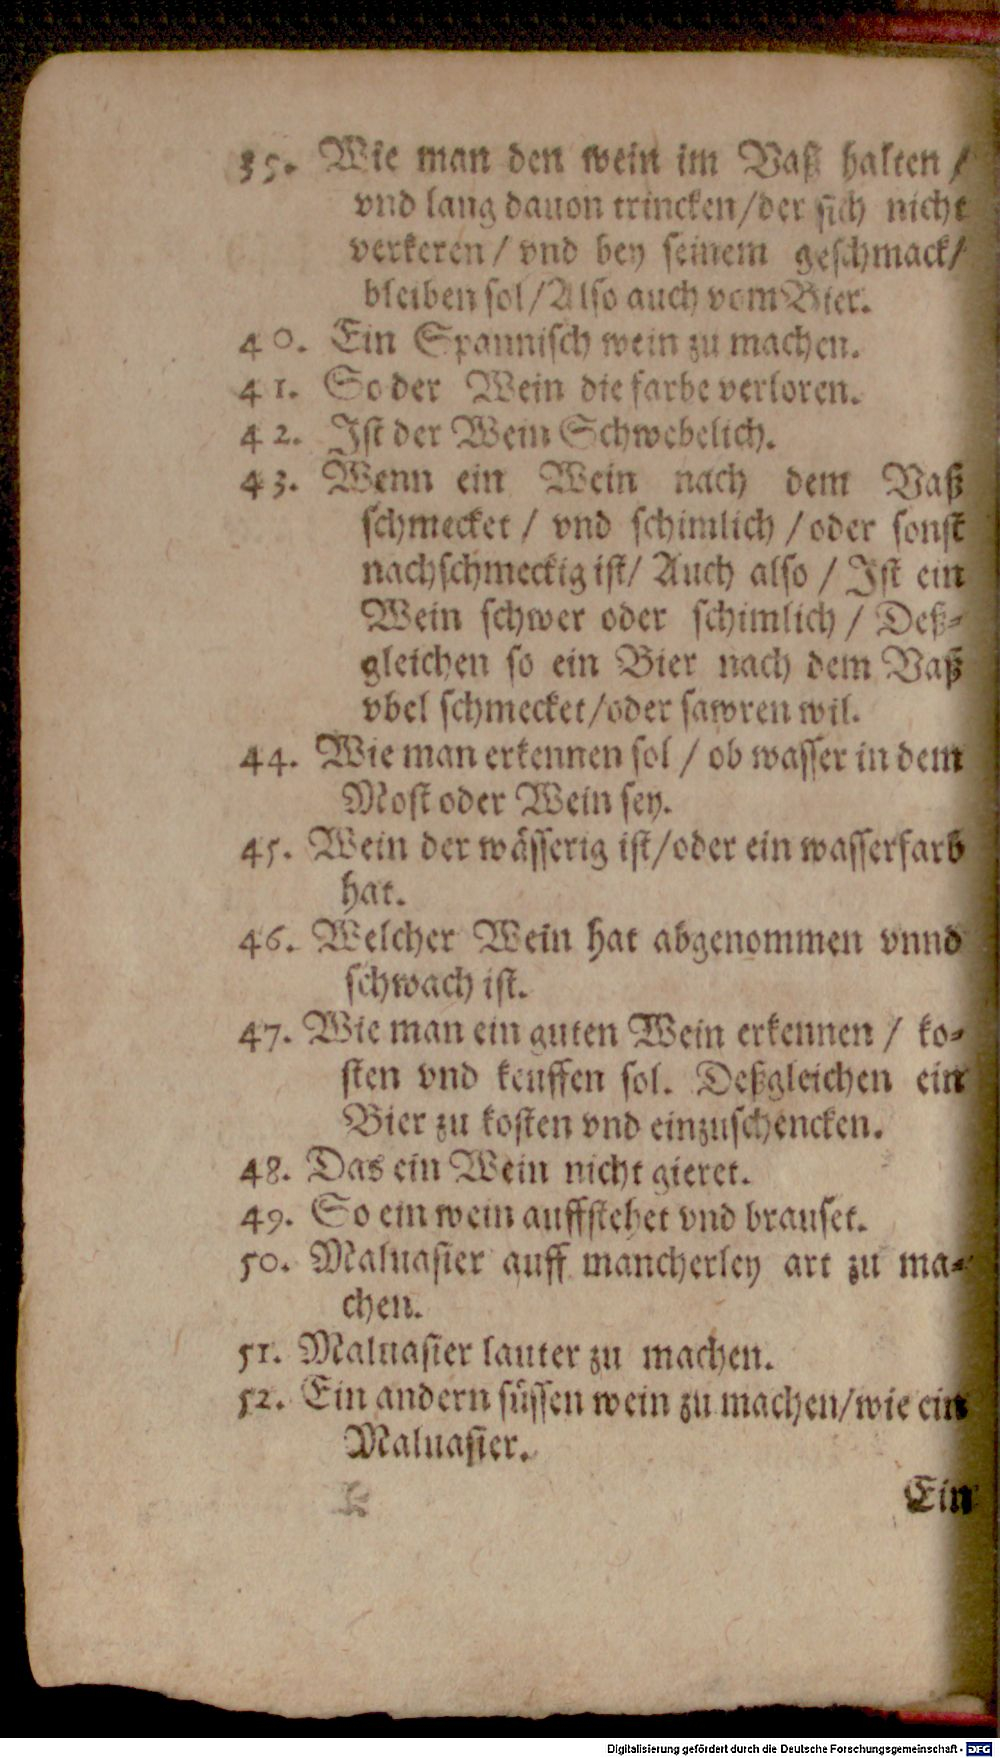 35. Wie man den wein im Vaß halten /
vnd lang dauon trincken/der sich nicht
verkeren / vnd bey seinem geschmack/
bleiben sol/Also auch vom Bier.
40. Ein Spannisch wein zu machen.
41. So der Wein die farbe verloren.
42. Ist der Wein Schwebelich.
43. Wenn ein Wein nach dem Vaß
schmecket / vnd schimlich / oder sonst
nachschmeckig ist/ Auch also / Ist ein
Wein schwer oder schimlich / Deß-
gleichen so ein Bier nach dem Vaß
vbel schmecket/oder sawren wil.
44. Wie man erkennen sol / ob wasser in dem
Most oder Wein sey.
45. Wein der wässerig ist/oder ein wasserfarb
hat.
46. Welcher Wein hat abgenommen vnnd
schwach ist.
47. Wie man ein guten Wein erkennen / ko-
sten vnd keuffen sol. Deßgleichen ein
Bier zu kosten vnd einzuschencken.
48. Das ein Wein nicht gieret.
49. So ein wein auffstehet vnd brauset.
50. Maluasier auff mancherley art zu ma-
chen.
51. Maluasier lauter zu machen.
52. Ein andern süssen wein zu machen/wie ein
Maluasier.
Ein
Digitalisierung gefördert durch die Deutsche Forschungsgemeinschaft - DFG